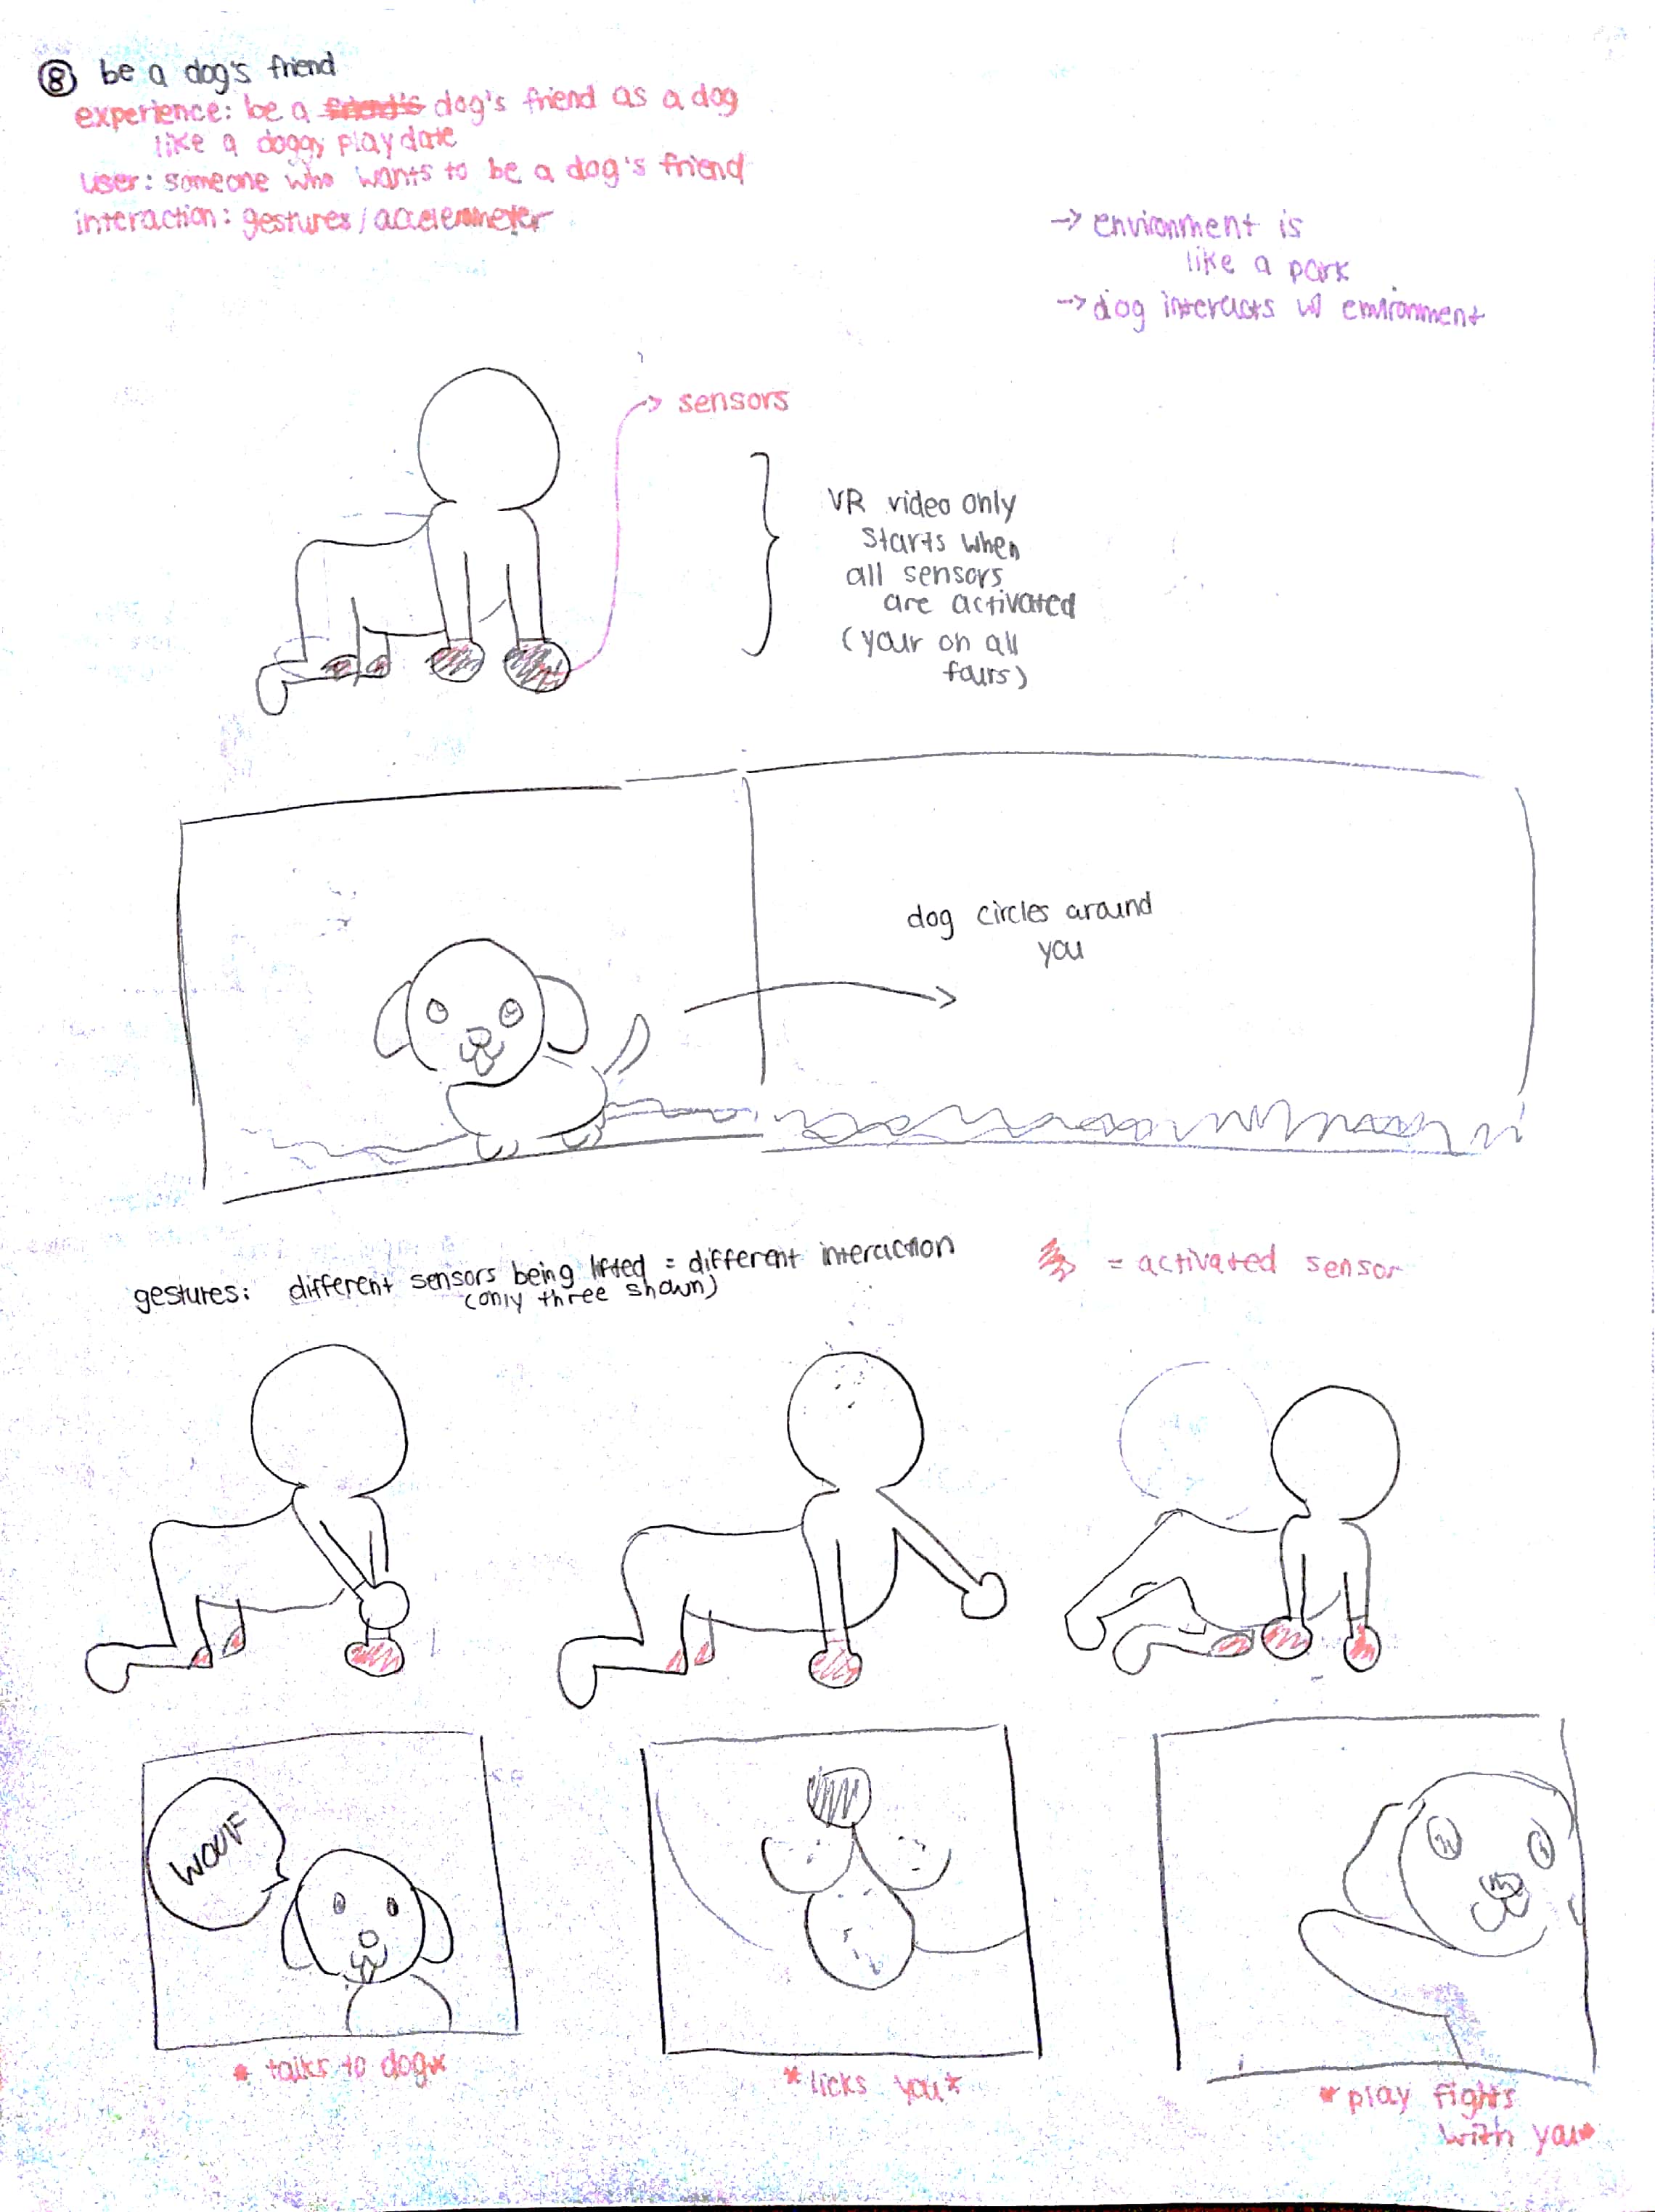 ⑧ be a dog's friend
experience: be a friend's dog's friend as a dog
like a doggy play date
user: someone who wants to be a dog's friend
interaction: gestures/accelerometer
→ environment is
like a park
→ dog interacts w/ environment
→ sensors
VR video only
starts when
all sensors
are activated
(your on all
fours)
dog circles around
you
gestures: different sensors being lifted = different interaction
(only three shown)
= activated sensor
WOUF
* talks to dog*
*licks you*
*play fights
with you*